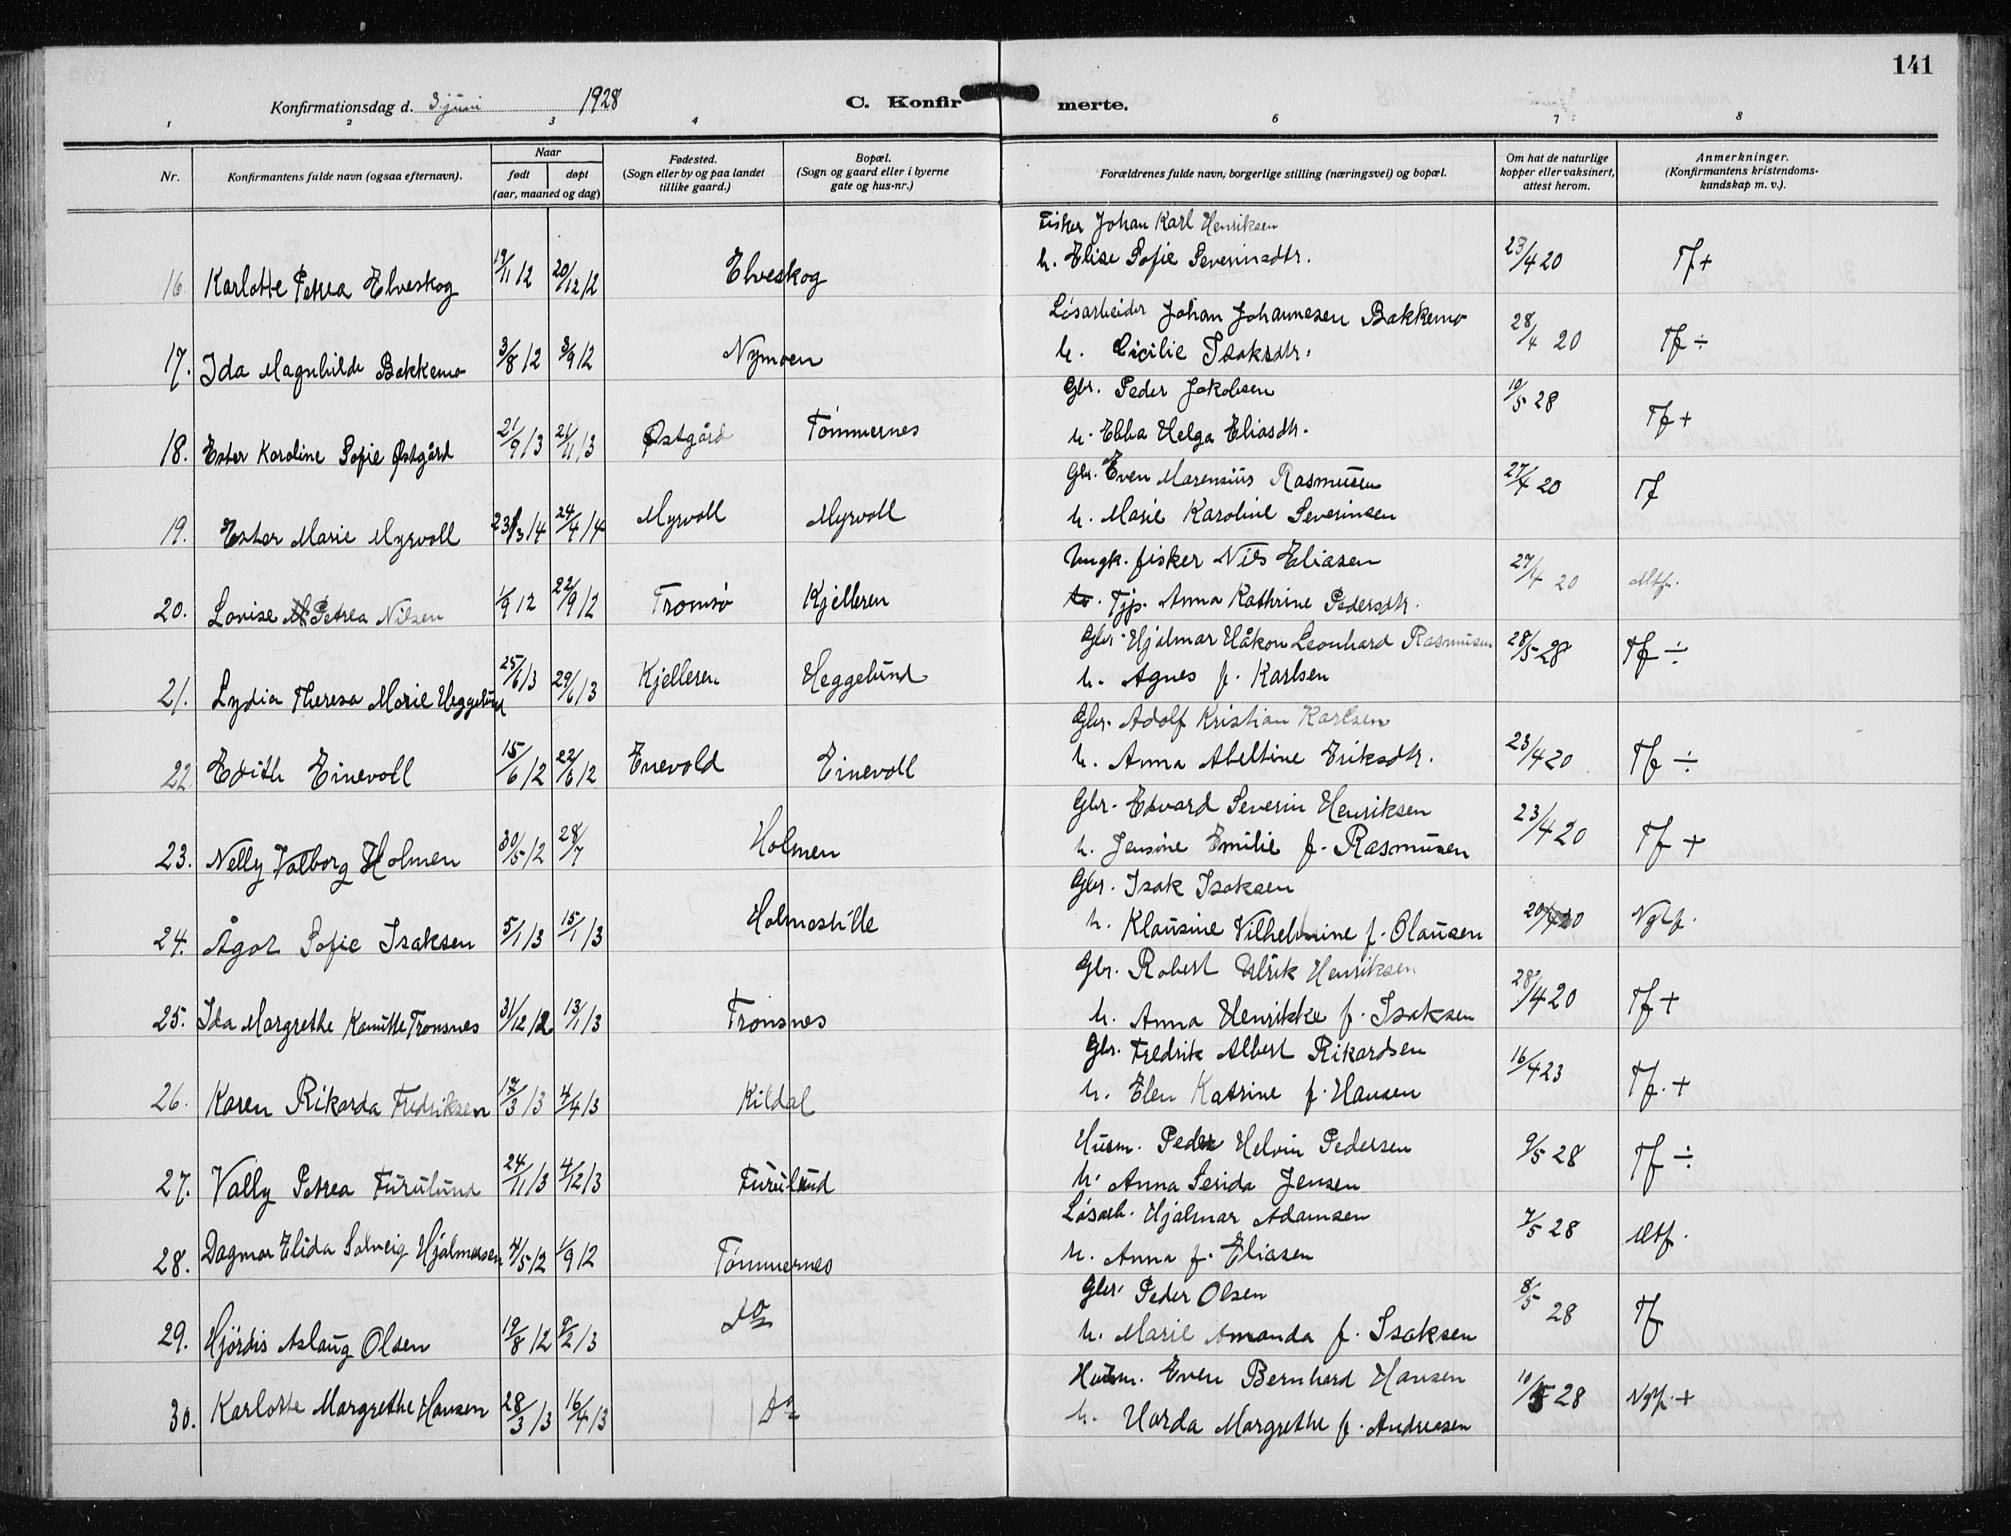 141
Konfirmationsdag d. 3 juni 1928
C. Konfirmerte.
1 2 3 4 6 7 8
Nr. Konfirmantens fulde navn (ogsaa efternavn). Naar født døpt (aar, maaned og dag) Fødested. (Sogn eller by og paa landet tillike gaard.) Bopæl. (Sogn og gaard eller i byerne gate og hus-nr.) Forældrenes fulde navn, borgerlige stilling (næringsvei) og bopæl. Om hat de naturlige kopper eller vaksinert, attest herom. Anmerkninger. (Konfirmantens kristendomskundskap m. v.).
Fisker Johan Karl Henriksen
16 Karlotte Petrea Elveskog 19/11 12 20/12 12 Elveskog h. Elise Sofie Severinsdtr. 23/4 20 Tf +
Løsarbeider Johan Johannesen Bakkemo
17. Ida Magnhilde Bakkemo 3/8 12 8/9 12 Nymoen h. Cicilie Isaksdtr. 28/4 20 Tf ÷
Gbr. Peder Jakobsen
18. Ester Karoline Sofie Østgård 21/9 13 21/11 13 Østgård Tømmernes h. Ebba Helga Eliasdtr. 10/5 28 Tf +
Gbr. Even Marensius Rasmusen
19. Ester Marie Myrvoll 23/3 14 24/4 14 Myrvoll Myrvoll h. Marie Karoline Severinsen 27/4 20 Tf
Ungk. fisker Nils Eliasen
20. Lovise Petrea Nilsen 1/9 12 22/9 12 Tromsø Kjelleren Tjp. Anna Kathrine Pedersdtr. 27/4 20 Mtf.
Gbr. Hjalmar Håkon Leonhard Rasmusen
21. Lydia Theresa Marie Heggelund 25/6 13 29/6 13 Kjelleren Heggelund h. Agnes f. Karlsen 28/5 28 Tf ÷
Gbr. Adolf Kristian Karlsen
22 Edith Einevoll 15/6 12 22/6 12 Enevold Einevoll h. Anna Abeltine Eriksdtr. 23/4 20 Tf ÷
Gbr. Edvard Severin Henriksen
23. Nelly Valborg Holmen 30/5 12 28/7 Holmen h. Jensine Emilie f. Rasmusen 23/4 20 Tf +
Gbr. Isak Isaksen
24. Ågot Sofie Isaksen 5/1 13 15/1 13 Holmeslille h. Klausine Vilhelmine f. Olausen 20/4 20 Ngtf.
Gbr. Robert Ulrik Henriksen
25. Ida Margrethe Kamille Tronsnes 31/12 12 13/1 13 Tronsnes h. Anna Henrikke f. Isaksen 28/4 20 Tf +
Gbr. Fredrik Albert Rikardsen
26. Karen Rikarda Fredriksen 17/3 13 4/4 13 Kildal h. Elen Katrine f. Hansen 16/4 23 Tf. +
Husm. Peder Helvin Pedersen
27. Vally Petrea Furulund 24/11 13 4/12 13 Furulund h. Anna Serida Jensen 9/5 28 Tf ÷
Løsarb. Hjalmar Adamsen
28. Dagmar Elida Solveig Hjalmarsen 4/5 12 1/9 12 Tømmernes h. Anna f. Eliasen 7/5 28 Mtf.
Gbr. Peder Olsen
29. Hjørdis Aslaug Olsen 19/8 12 9/2 13 do h. Marie Amanda f. Isaksen 8/5 28 Tf
Husm. Even Bernhard Hansen
30. Karlotte Margrethe Hansen 28/3 13 16/4 13 do h. Harda Margrethe f. Andreasen 10/5 28 Ngtf. +